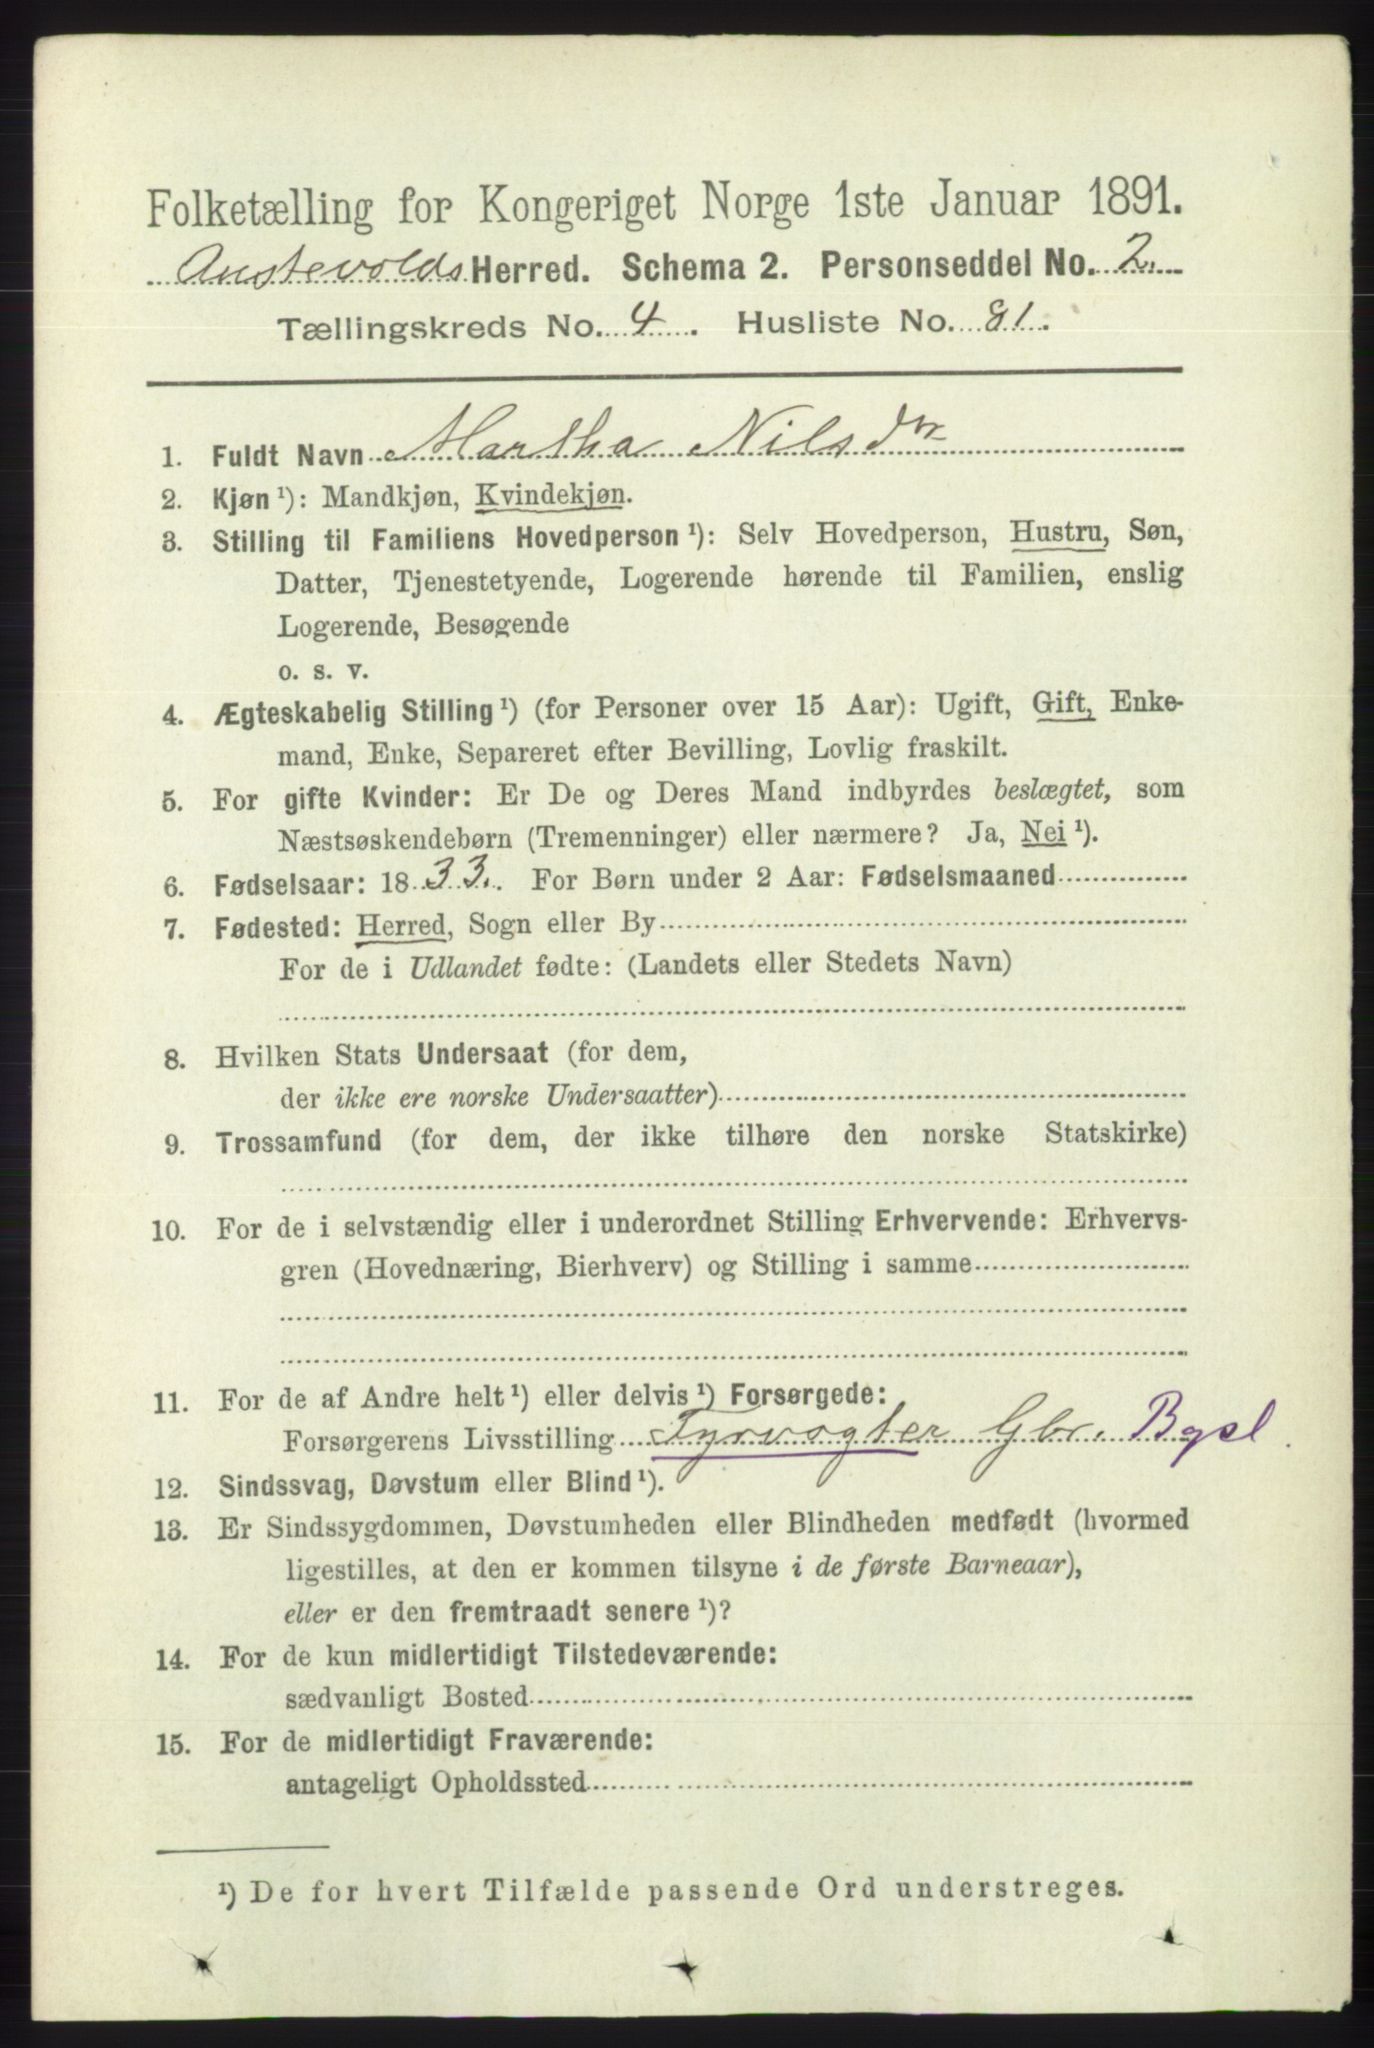 Folketælling for Kongeriget Norge 1ste Januar 1891.
Austevolds Herred. Schema 2. Personseddel No. 2.
Tællingskreds No. 4. Husliste No. 81.
1. Fuldt Navn Martha Nilsdtr
2. Kjøn ¹): Mandkjøn, Kvindekjøn.
3. Stilling til Familiens Hovedperson ¹): Selv Hovedperson, Hustru, Søn,
Datter, Tjenestetyende, Logerende hørende til Familien, enslig
Logerende, Besøgende
o. s. v.
4. Ægteskabelig Stilling ¹) (for Personer over 15 Aar): Ugift, Gift, Enke-
mand, Enke, Separeret efter Bevilling, Lovlig fraskilt.
5. For gifte Kvinder: Er De og Deres Mand indbyrdes beslægtet, som
Næstsøskendebørn (Tremenninger) eller nærmere? Ja, Nei ¹).
6. Fødselsaar: 1833. For Børn under 2 Aar: Fødselsmaaned
7. Fødested: Herred, Sogn eller By
For de i Udlandet fødte: (Landets eller Stedets Navn)
8. Hvilken Stats Undersaat (for dem,
der ikke ere norske Undersaatter)
9. Trossamfund (for dem, der ikke tilhøre den norske Statskirke)
10. For de i selvstændig eller i underordnet Stilling Erhvervende: Erhvervs-
gren (Hovednæring, Bierhverv) og Stilling i samme
11. For de af Andre helt ¹) eller delvis ¹) Forsørgede:
Forsørgerens Livsstilling Fyrvogter Gbr. Bgsl
12. Sindssvag, Døvstum eller Blind ¹).
13. Er Sindssygdommen, Døvstumheden eller Blindheden medfødt (hvormed
ligestilles, at den er kommen tilsyne i de første Barneaar),
eller er den fremtraadt senere ¹)?
14. For de kun midlertidigt Tilstedeværende:
sædvanligt Bosted
15. For de midlertidigt Fraværende:
antageligt Opholdssted
¹) De for hvert Tilfælde passende Ord understreges.